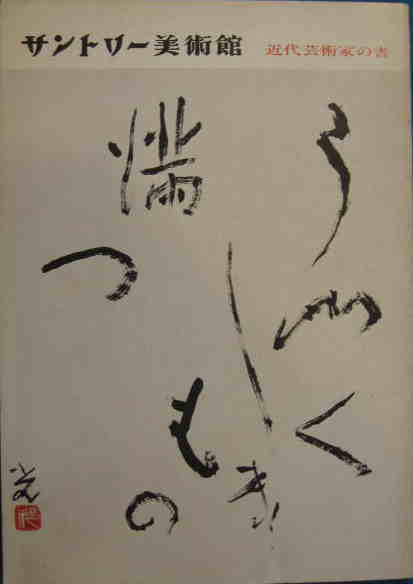 サントリー美術館 近代芸術家の書
うつく
しき
もの
満つ
光